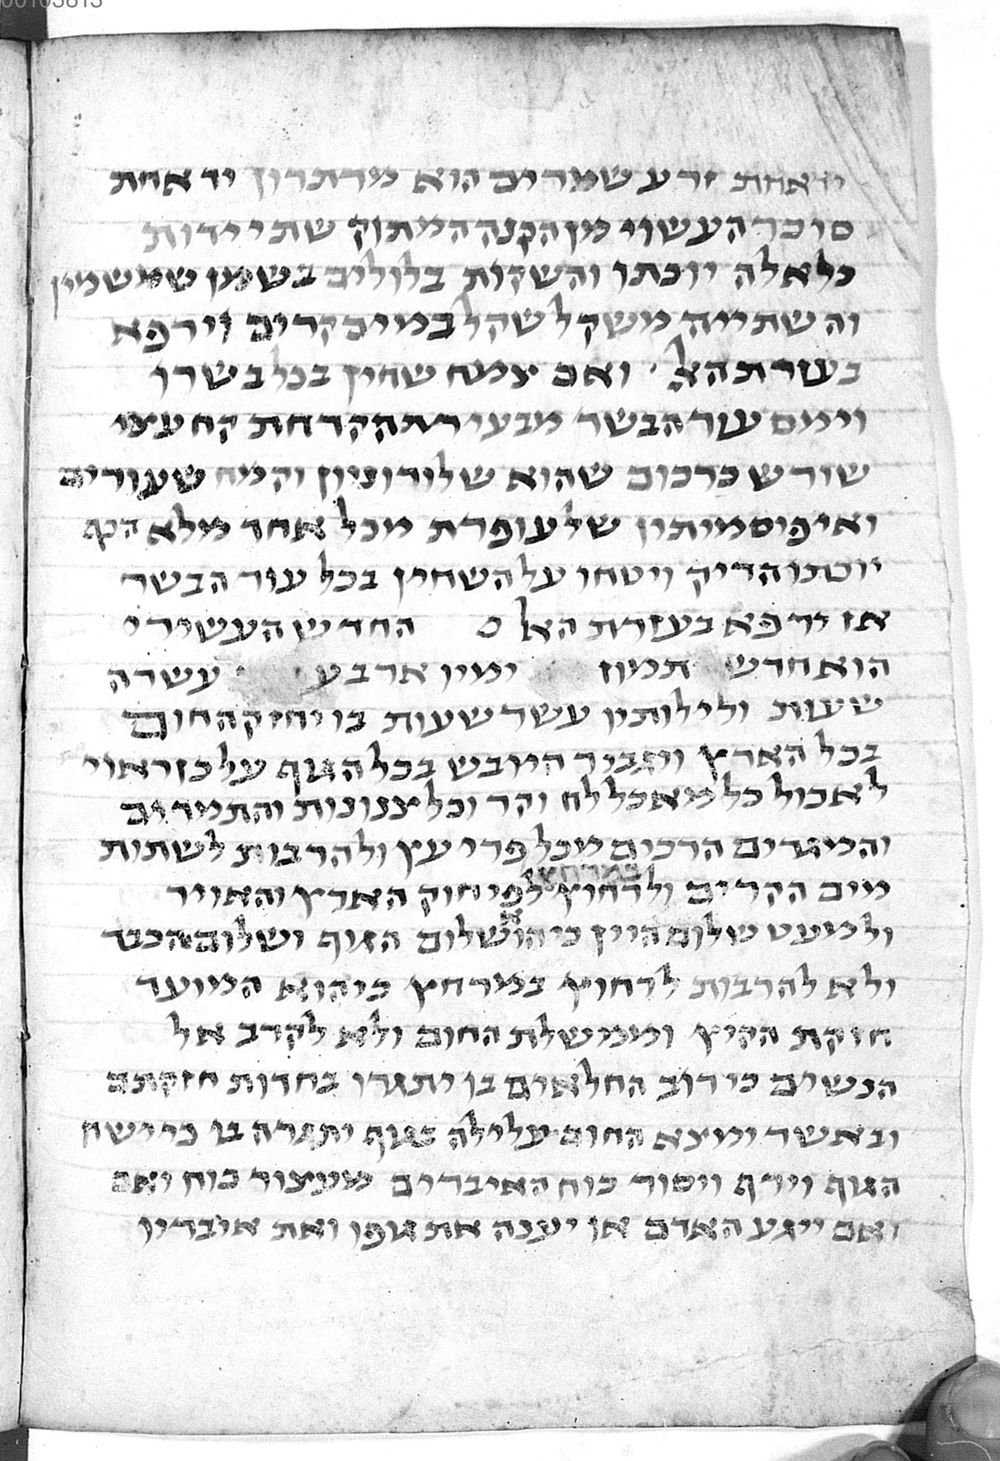 יד אחת זרע שמרים הוא מרתרון יד אחת
סוכר העשוי מן הקנה המתוק שתי ידות
כל אלה יוכתו והשקות בלולים בשמן שמשמין
והשתייה משקל שקל במים קרים וירפא
בעזרת האל ואם יצמח שחין בכל בשרו
וימס עור הבשר מבעירת הקדחת קח עצי
שורש כרכום שהוא שלורוניון וקמח שעורים
ואיפיסמיתין של עופרת מכל אחד מלא הכף
יוכתו הדיק ויטחו על השחין בכל עור הבשר
אז ירפא בעזרת האל החדש העשירי
הוא חדש תמוז ימיו ארבע עשרה
שעות ולילותיו עשר שעות בו יחזק החום
בכל הארץ ויגביר היובש בכל הגוף על כן ראוי
לאכול כל מאכל לח וקר וכל צנונות והתמרים
והמגדים הרכים מכל פרי עץ ולהרבות לשתות
מים הקרים ולרחוץ במרחץ לפי חוק הארץ והאויר
ולמעט שלום היין כי הוא שלום הגוף ושלום הכבד
ולא להרבות לרחוץ במרחץ כי הוא המועד
חזקת הקיץ וממשלת החום ולא לקרב אל
הנשים כי רוב החלאים בו יתגרו בחדות חזקתם
ובאשר ימצא החום עלילה בגוף יתגרה בו כי ישח
הגוף וירף ויסור כוח האיברים מעצור כוח ואם
ואם ייגע האדם או יענה את גופו ואת איבריו